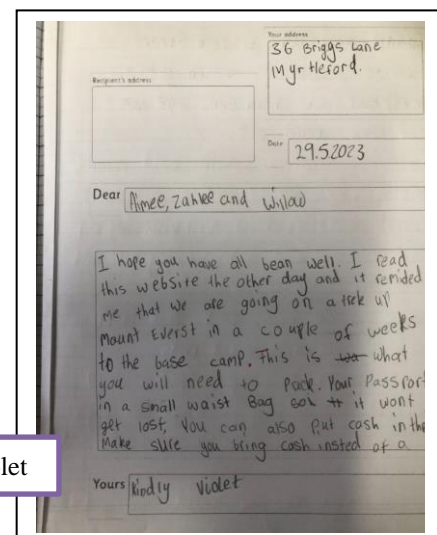 Your address
36 Briggs Lane
Myrtleford.
Recipient's address
Date
29.5.2023
Dear Aimee, Zahlee and Willow
I hope you have all bean well. I read
this website the other day and it remided
me that we are going on a trek up
Mount Everst in a couple of weeks
to the base camp. This is what
you will need to pack. Your Passport
in a small waist Bag so it wont
get lost, You can also put cash in the
Make sure you bring cash insted of a
let
Yours Kindly Violet